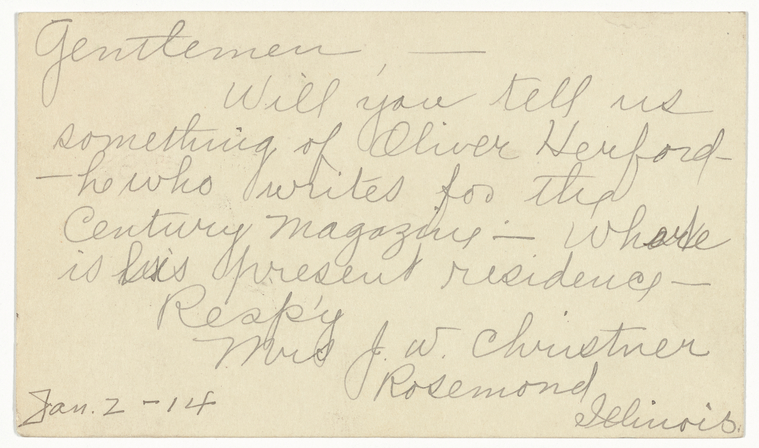 Gentlemen, —
Will you tell us
something of Oliver Herford—
—he who writes for the
Century Magazine — Where
is his present residence —
Resp'y
Mrs J. W. Christner
Rosemond
Illinois.
Jan. 2 - 14